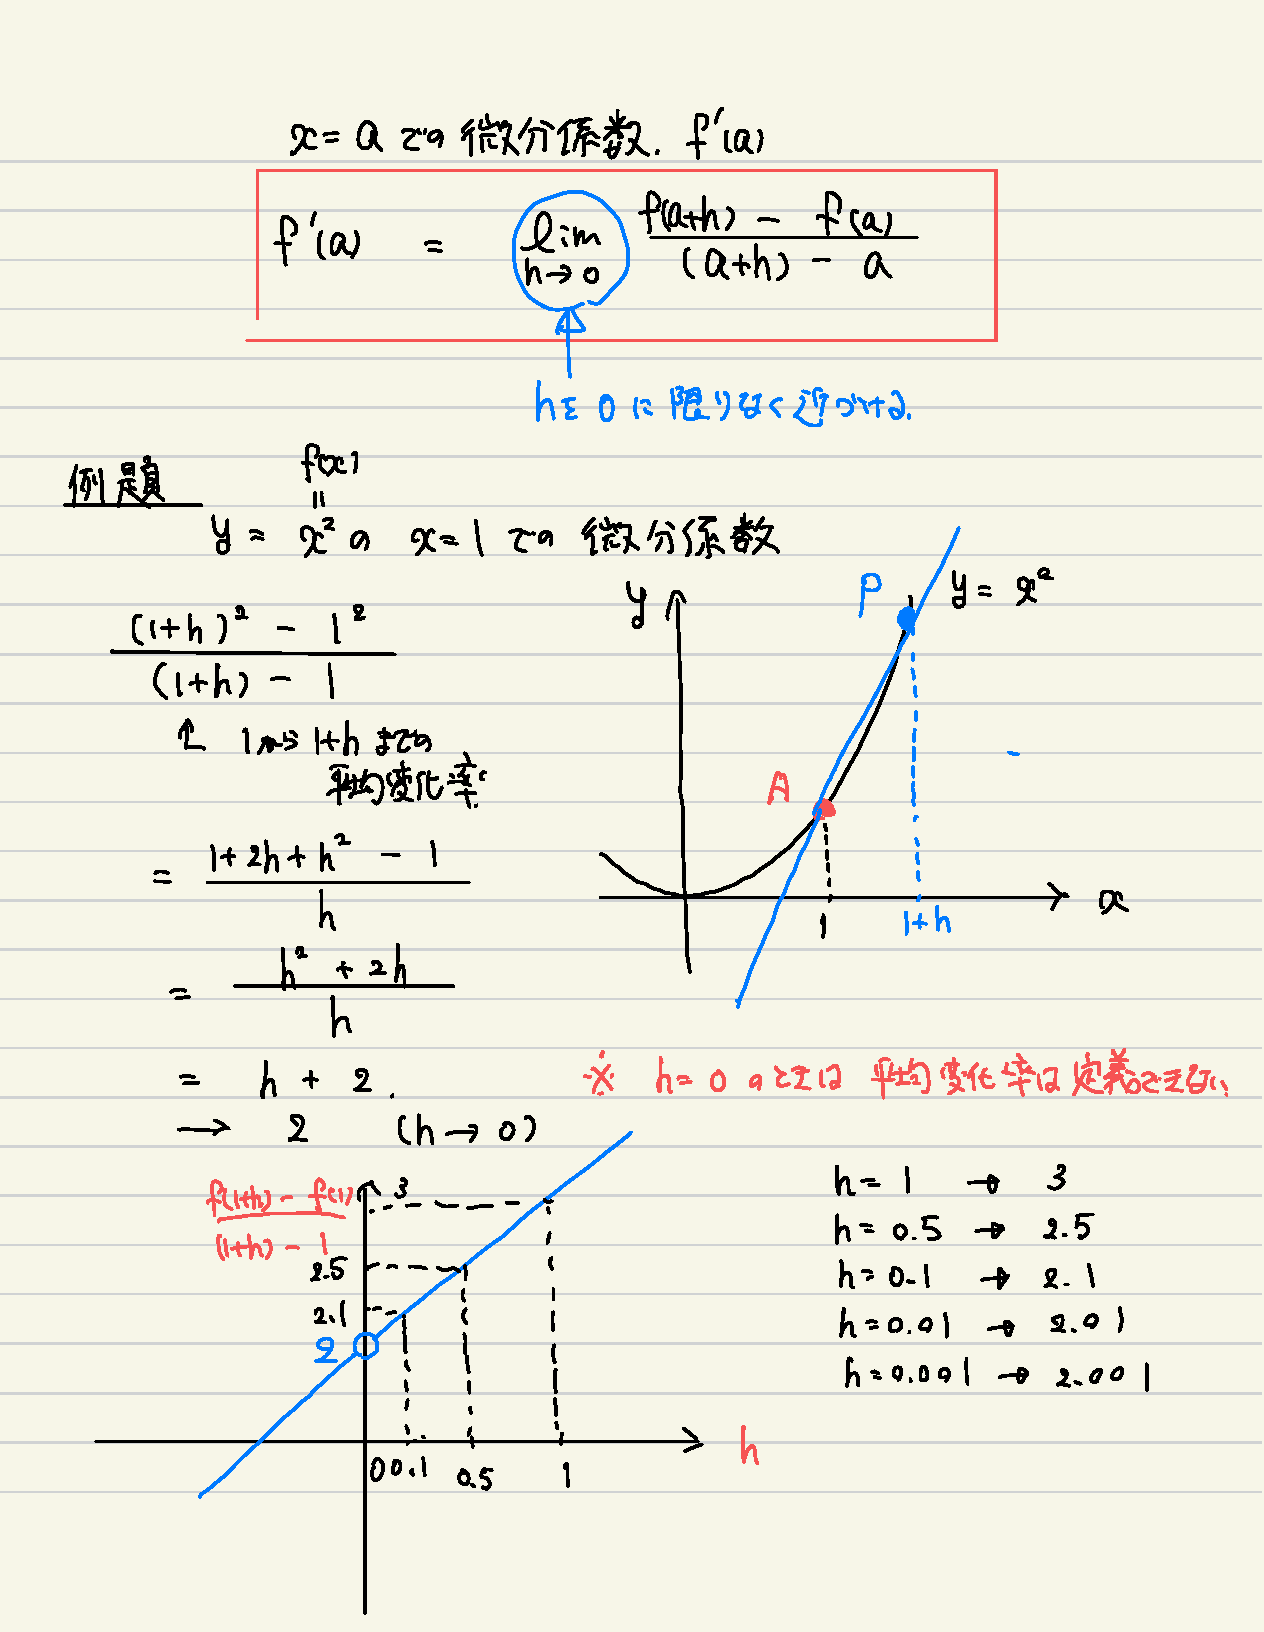 x=a での 微分係数. f'(a)
f'(a) = lim h→0 f(a+h) - f(a) / (a+h) - a
hを 0 に 限りなく近づける.
例題
f(x)
=
y = x² の x=1 での 微分係数
(1+h)² - 1² / (1+h) - 1
↑ 1から 1+h までの
平均変化率
= 1+2h+h² - 1 / h
= h² + 2h / h
= h + 2.
→ 2 (h→0)
y
P
y = x²
A
1
1+h
x
※ h=0 のときは 平均変化率は定義できない.
f(1+h) - f(1) / (1+h) - 1
3
2.5
2.1
2
0 0.1 0.5 1
h
h=1 → 3
h=0.5 → 2.5
h=0.1 → 2.1
h=0.01 → 2.01
h=0.001 → 2.001